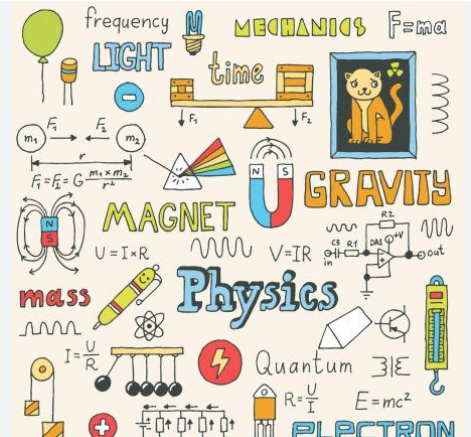 frequency
MECHANICS
F=ma
LIGHT
time
F₁
F₂
F₁
F₂
m₁
m₂
r
F₁=F₂=G m₁×m₂/r²
N
S
GRAVITY
MAGNET
N
S
U=I×R
V=IR
R2
C3
R1
DA1
+V
in
out
mass
Physics
I=U/R
Quantum
R=U/I
E=mc²
ELECTRON